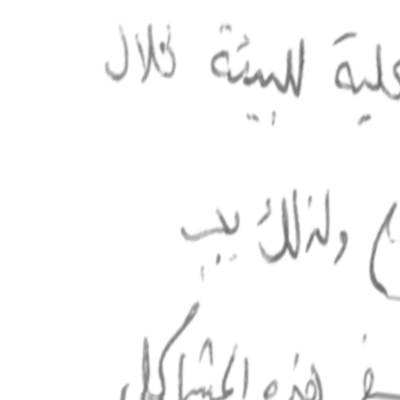 للبيئة خلال
ولذلك يجب
هذه المشاكل